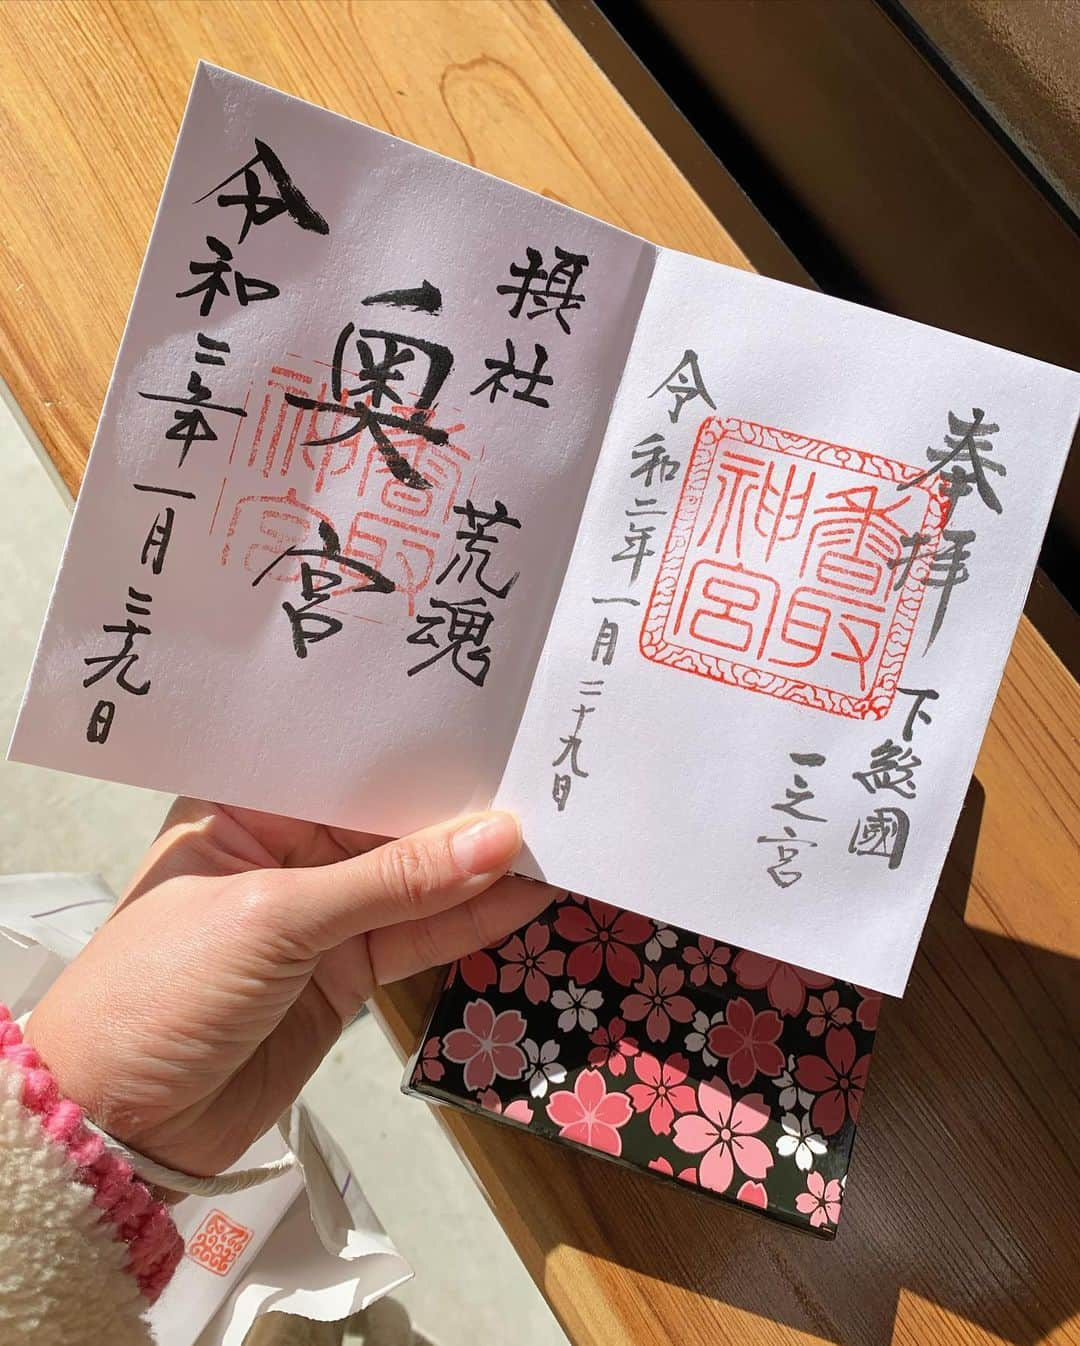 奉拝
下総國
一之宮
香取
神宮
令和二年一月二十九日
摂社
荒魂
奥宮
香取
神宮
令和二年一月二十九日